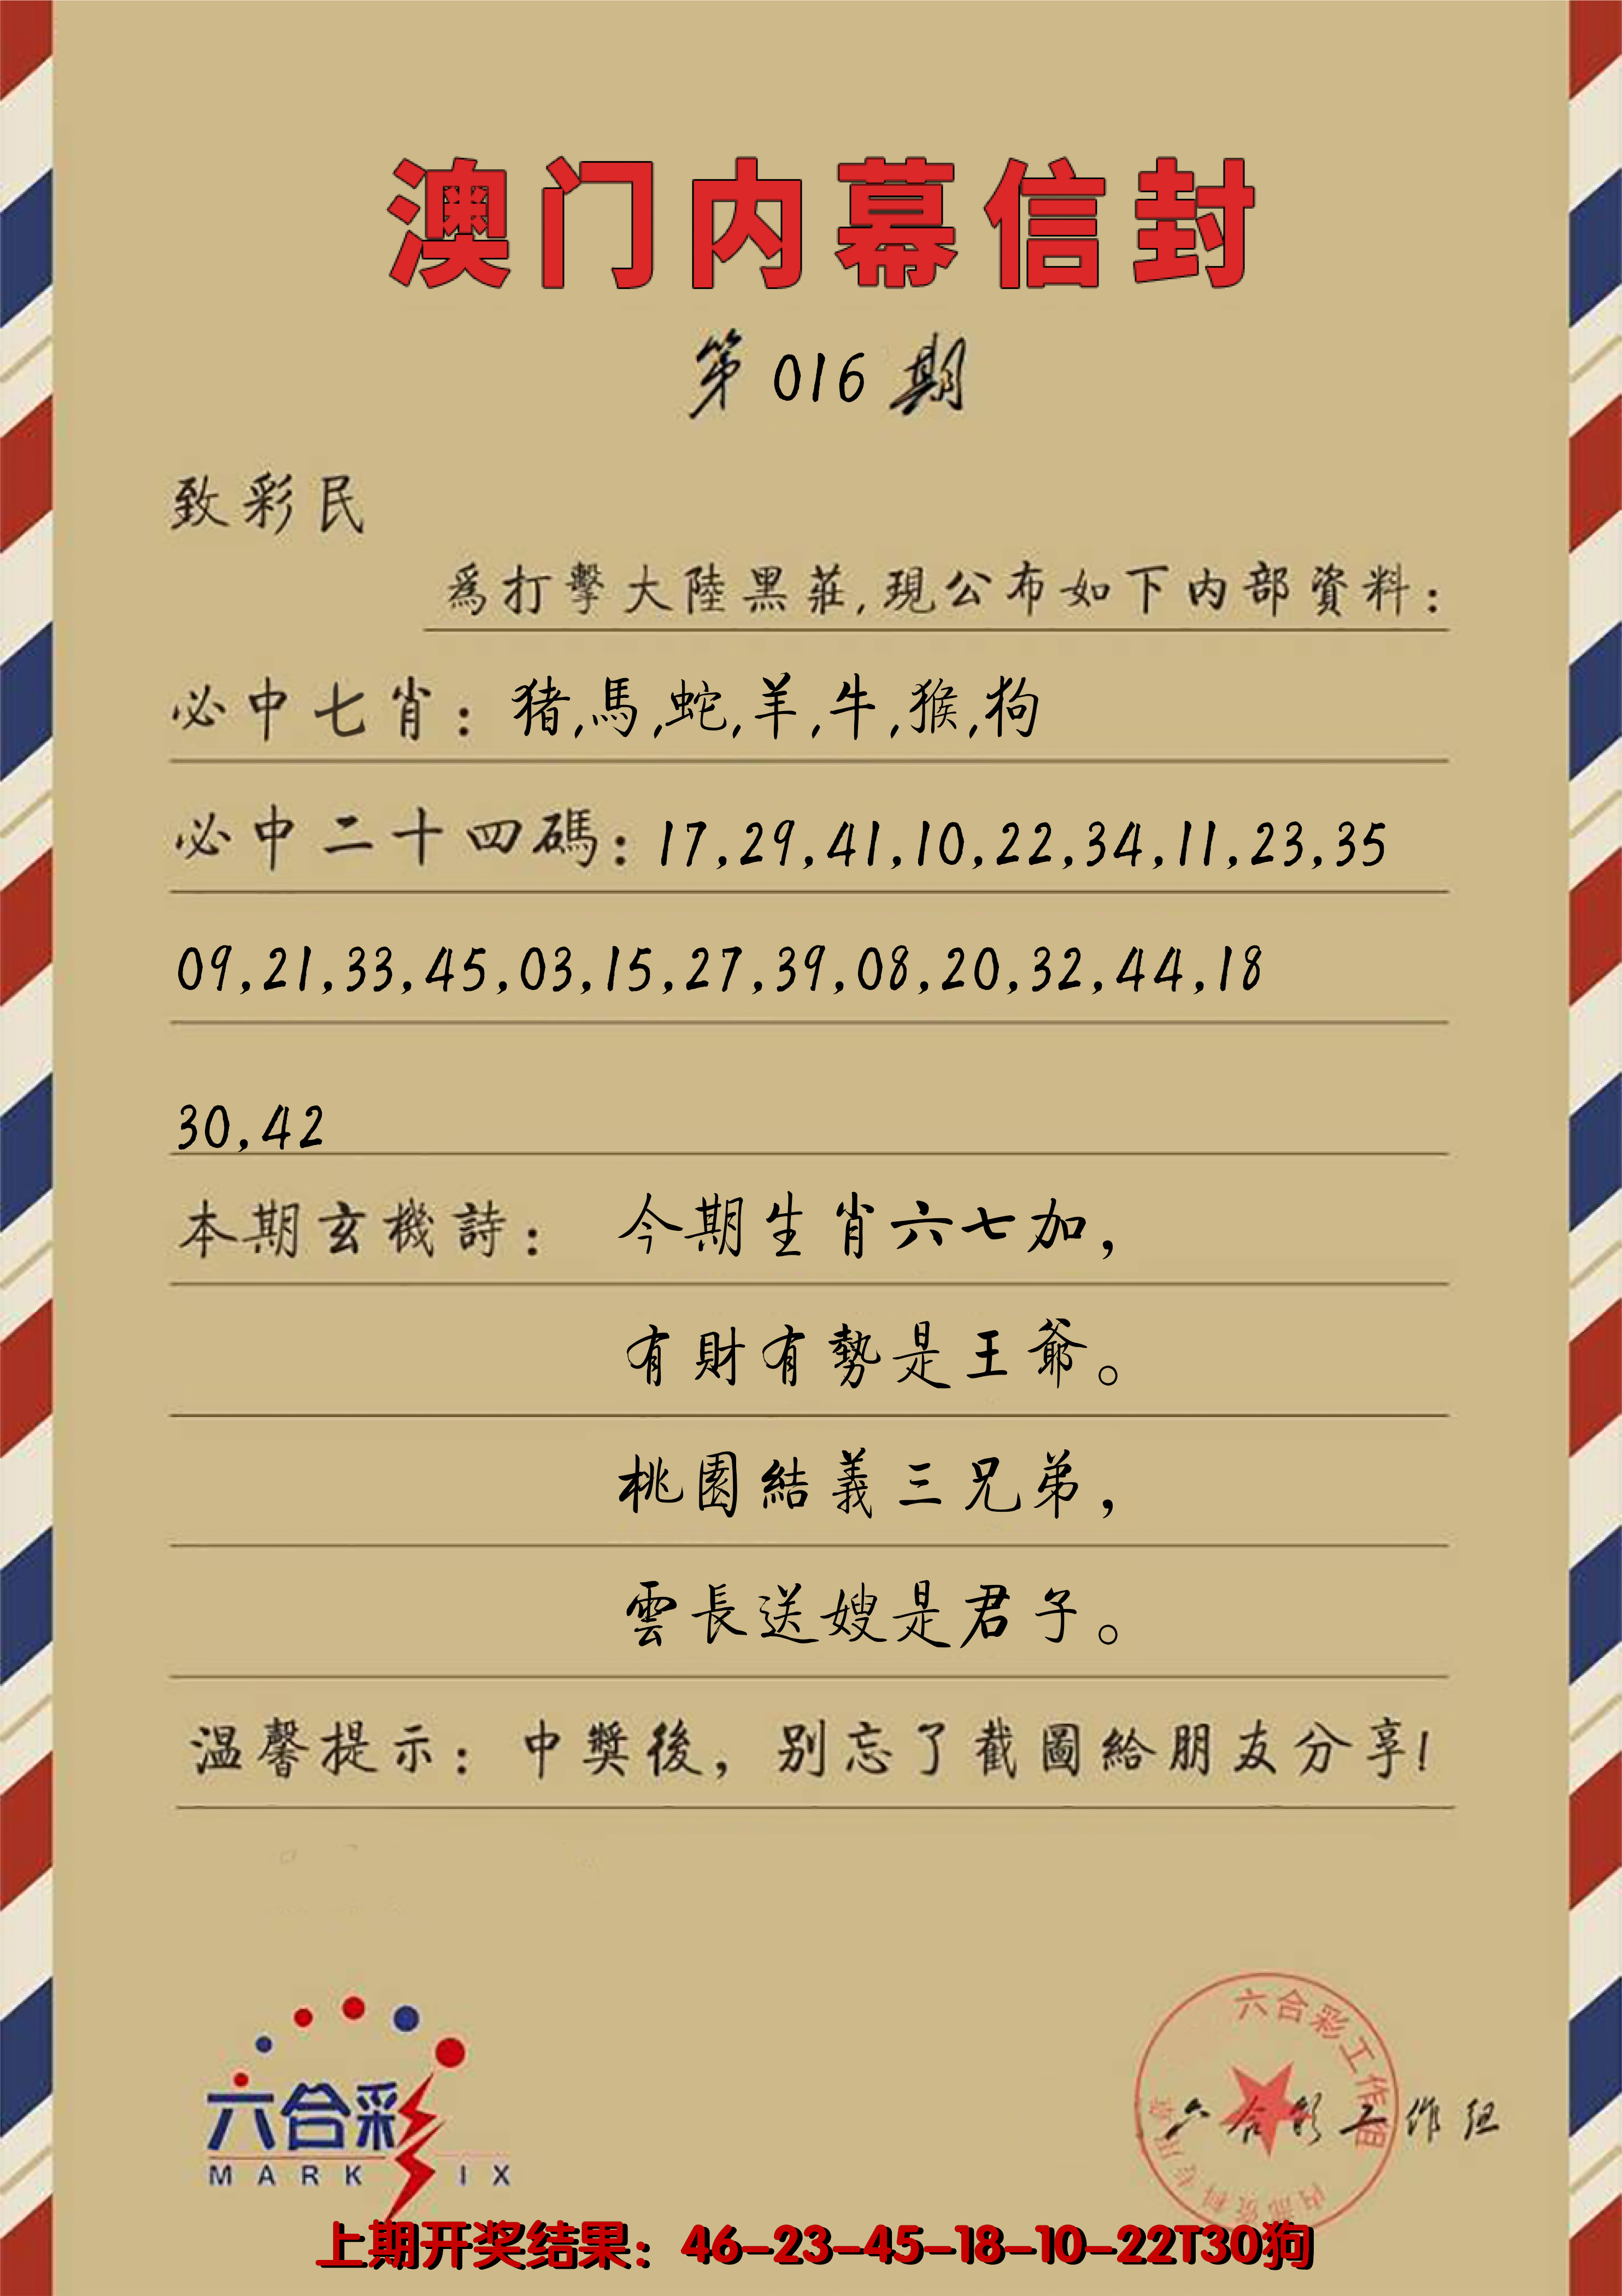 澳门内幕信封
第016期
致彩民
為打擊大陸黑莊,現公布如下内部資料:
必中七肖:猪,馬,蛇,羊,牛,猴,狗
必中二十四碼:17,29,41,10,22,34,11,23,35
09,21,33,45,03,15,27,39,08,20,32,44,18
30,42
本期玄機詩: 今期生肖六七加,
有財有勢是王爺。
桃園結義三兄弟,
雲長送嫂是君子。
温馨提示:中獎後,别忘了截圖給朋友分享!
六合彩
MARK IX
六合彩工作组
内部资料专用章
六合彩工作组
上期开奖结果:46-23-45-18-10-22T30狗